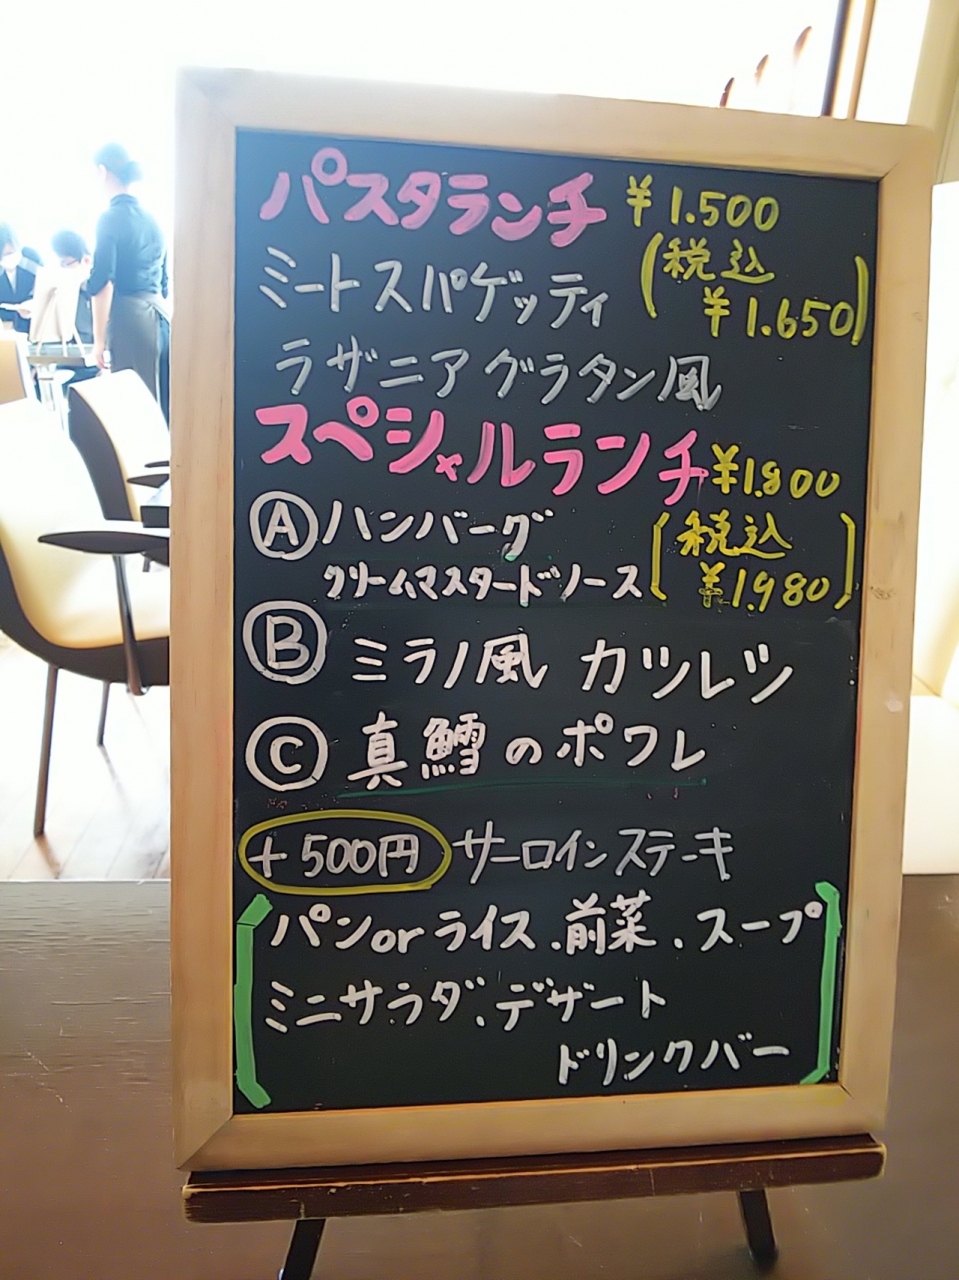 パスタランチ ¥1.500
ミートスパゲッティ (税込 ¥1.650)
ラザニアグラタン風
スペシャルランチ ¥1.800
Ⓐハンバーグ (税込
クリームマスタードソース ¥1.980)
Ⓑ ミラノ風 カツレツ
Ⓒ 真鱈のポワレ
+500円 サーロインステーキ
パンorライス.前菜.スープ
ミニサラダ.デザート
ドリンクバー